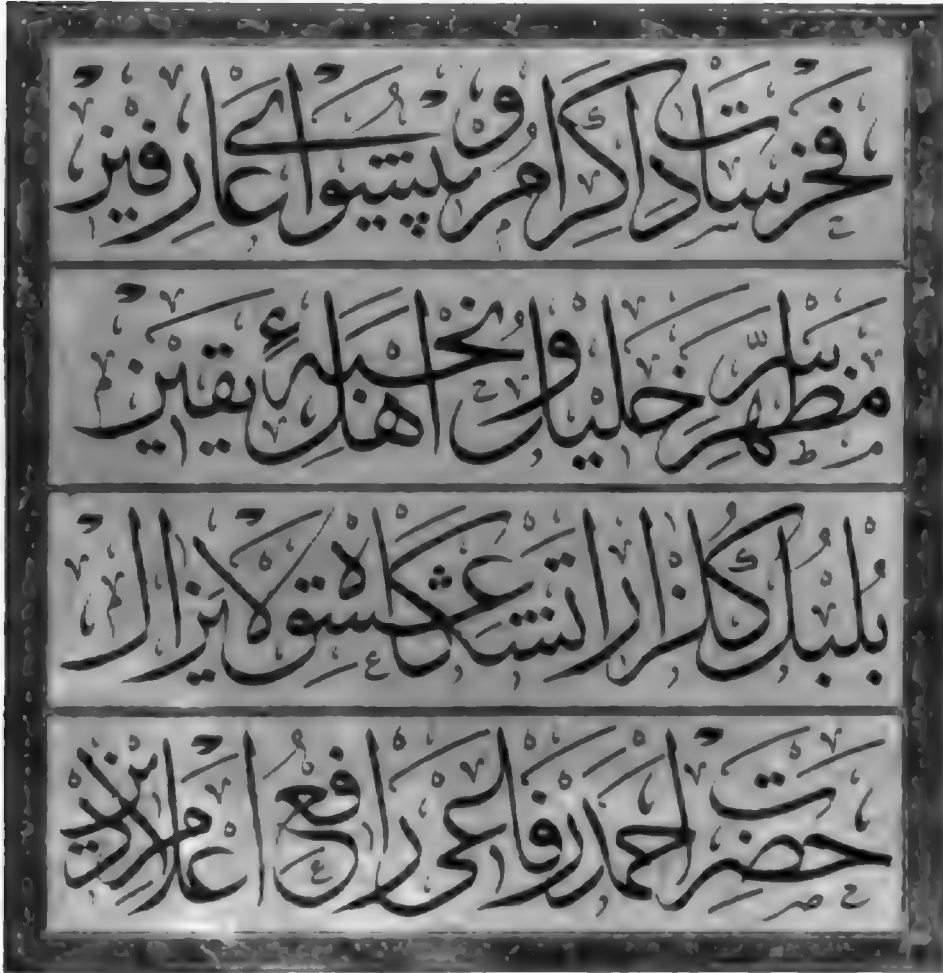 فخر سادات كرام و پیشوای عارفین
مظهر سر خلیل و نخبهٔ اهل یقین
بلبل كلزار اتشكاه عشق لایزال
حضرت احمد رفاعی رافع اعلام دین